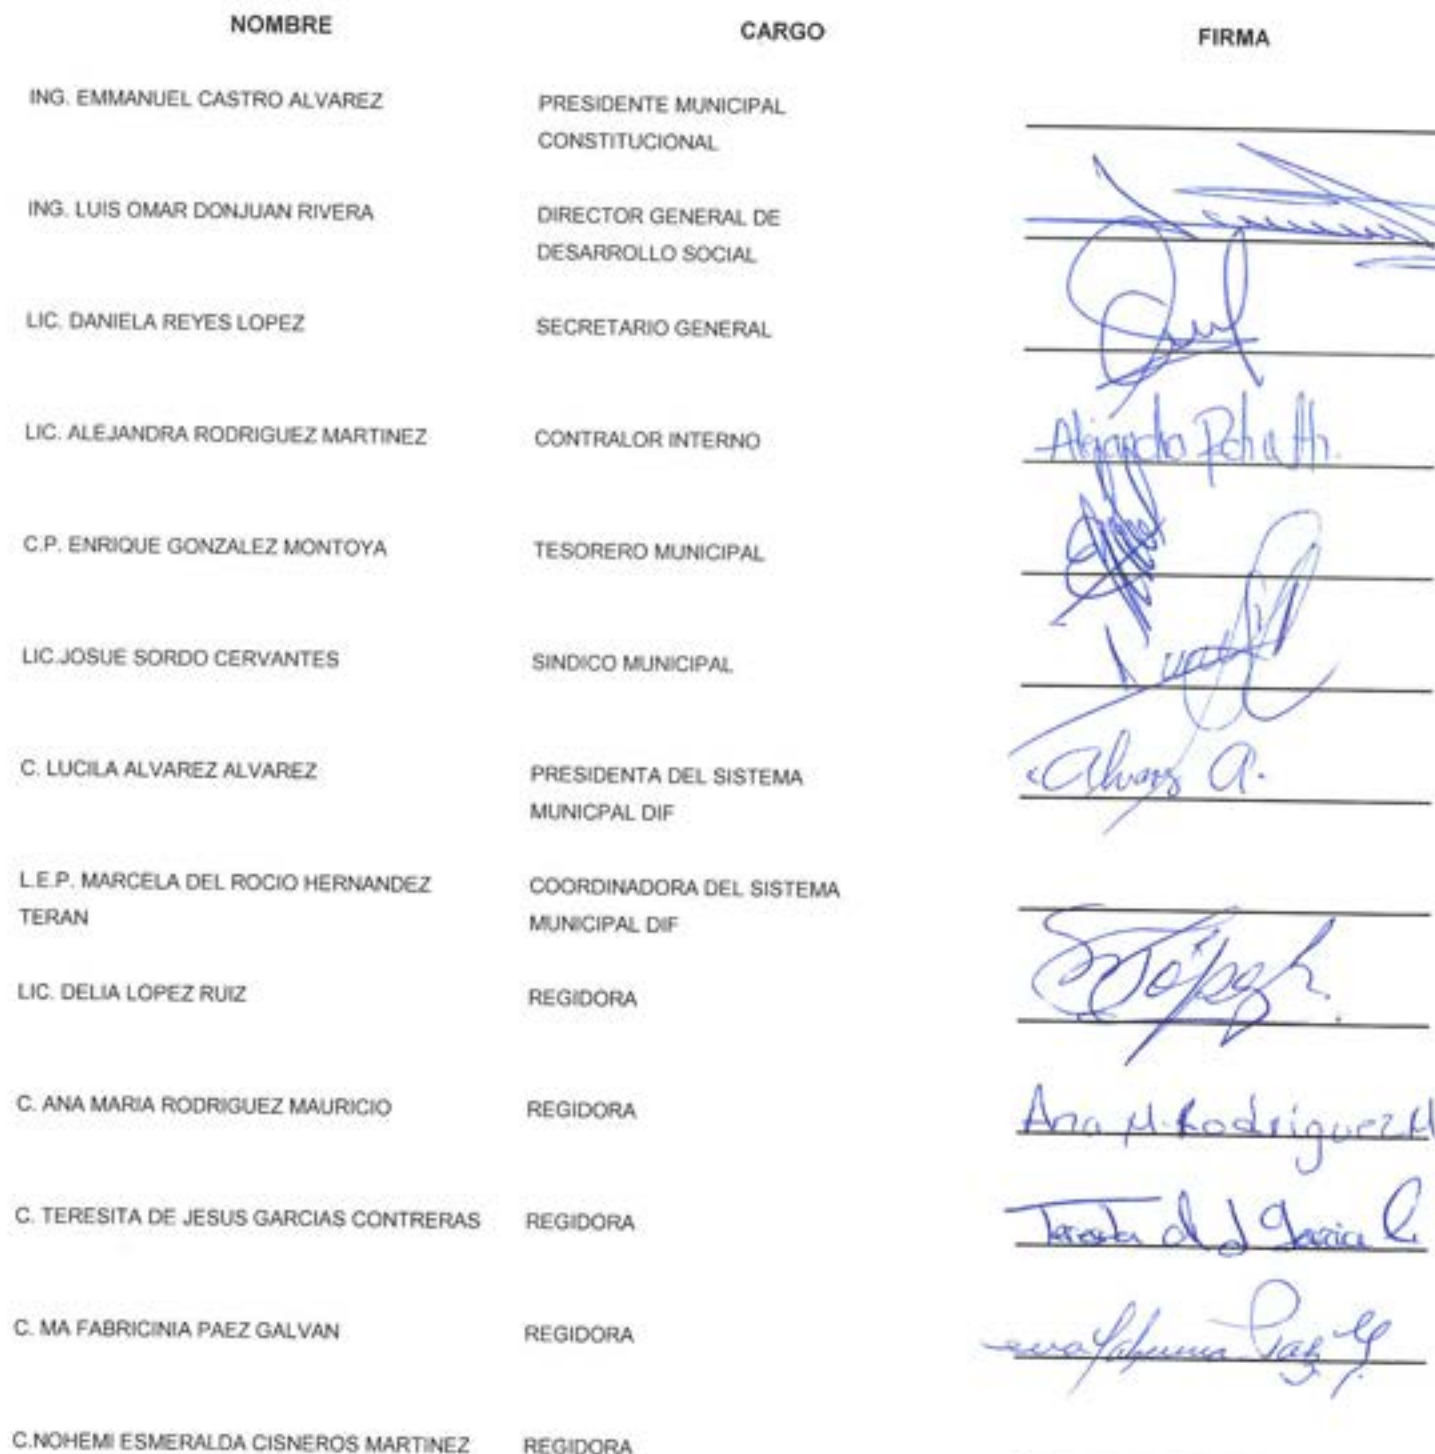 NOMBRE CARGO FIRMA
ING. EMMANUEL CASTRO ALVAREZ PRESIDENTE MUNICIPAL
CONSTITUCIONAL
ING. LUIS OMAR DONJUAN RIVERA DIRECTOR GENERAL DE
DESARROLLO SOCIAL
LIC. DANIELA REYES LOPEZ SECRETARIO GENERAL
LIC. ALEJANDRA RODRIGUEZ MARTINEZ CONTRALOR INTERNO
C.P. ENRIQUE GONZALEZ MONTOYA TESORERO MUNICIPAL
LIC.JOSUE SORDO CERVANTES SINDICO MUNICIPAL
C. LUCILA ALVAREZ ALVAREZ PRESIDENTA DEL SISTEMA
MUNICPAL DIF
A.
L.E.P. MARCELA DEL ROCIO HERNANDEZ COORDINADORA DEL SISTEMA
TERAN MUNICIPAL DIF
LIC. DELIA LOPEZ RUIZ REGIDORA
C. ANA MARIA RODRIGUEZ MAURICIO REGIDORA Ana M. Rodriguez M
C. TERESITA DE JESUS GARCIAS CONTRERAS REGIDORA Teresita d J Garcia C
C. MA FABRICINIA PAEZ GALVAN REGIDORA
C.NOHEMI ESMERALDA CISNEROS MARTINEZ REGIDORA